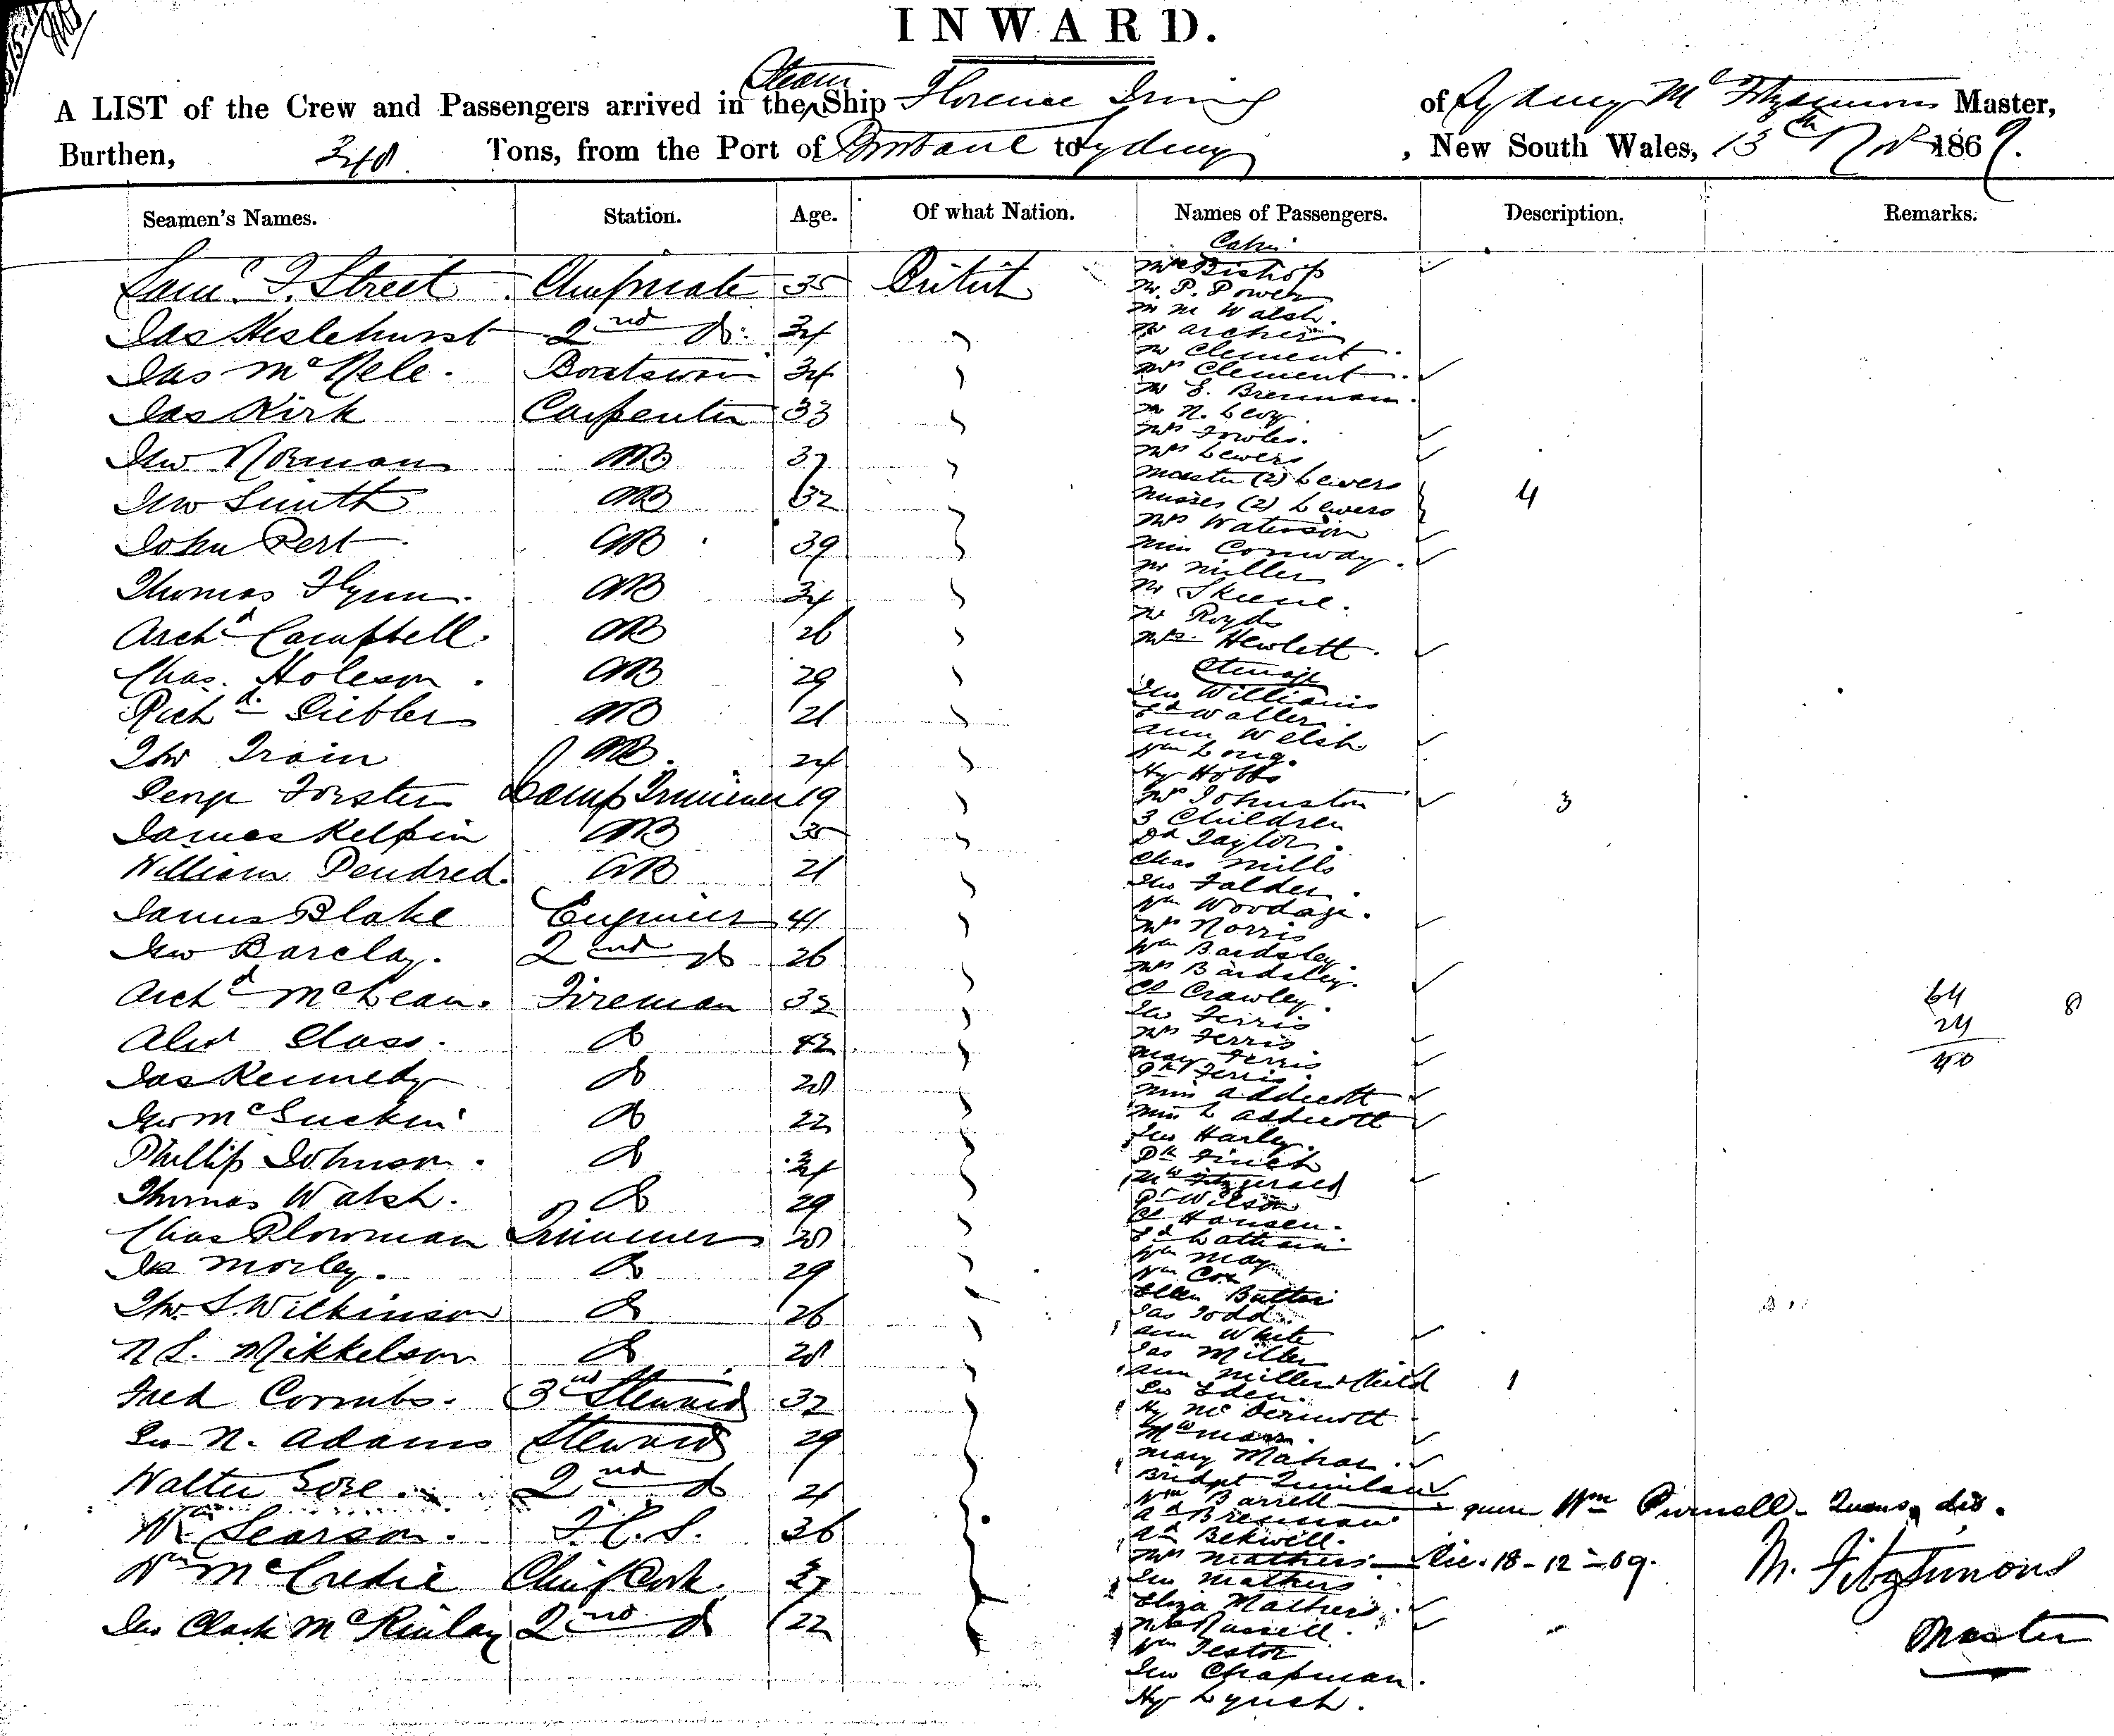 INWARD.
A LIST of the Crew and Passengers arrived in the Steam Ship Florence Irving of Sydney Mc Fitzsimmons Master,
Burthen, 348 Tons, from the Port of Brisbane to Sydney, New South Wales, 13th Nov 1869.
Seamen's Names. Station. Age. Of what Nation. Names of Passengers. Description. Remarks.
Saml. F. Street Chief mate 35 British
Jas Heslehurst 2nd do. 34
Jas McNele. Boatswain 34
Jas Kirk Carpenter 33
Jno Norman AB 37
Jno Smith AB 32
John Pert AB 39
Thomas Flynn. AB 34
Archd Campbell. AB 26
Chas. Holeson. AB 29
Richd. AB 21
Thos Train AB. 24
George Forster Lamp Trimmer 19
James Kelpin AB 35
William Pendred. AB 21
James Blake Engineer 41
Jno Barclay. 2nd do 26
Archd McLean. Fireman 32
Alexr Class. do 42
Jas Kennedy do 28
Jno do 22
Phillip Johnson. do 34
Thomas Walsh. do 29
Chas Plowman Trimmer 28
Jas Morley. do 29
Thos. S. Wilkinson do 26
N S. Mikkelson do 28
Fred Coombs. 3rd Steward 32
Geo N. Adams Steward 29
Walter Gore. 2nd do 21
Wm Searson. F.C.S. 36
Wm McCredie Chief Cook. 37
Jno Clark McKinlay 2nd do 22
Cabin
Mrs Bishop
Mr. P. Power
Mr M Walsh.
Mr Archer
Mr Clement.
Mrs Clement.
Mr E. Brennan.
Mr N. Levy
Mrs Fowles.
Mrs Lewers
Master (2) Lewers
Misses (2) Lewers 4
Mrs Waterson
Miss Conway.
Mr Miller
Mr Skene.
Mr Royds
Mrs. Hewlett.
Steerage
Jno Williams
Ed Waller.
Ann Welsh
Wm Long.
Hy Hobbs
Mrs Johnston
3 Children 3
Dd Taylor.
Chas Mills
Jno Falder.
Wm Woodage.
Mrs Norris
Wm Bardsley.
Mrs Bardsley.
Cs Crawley.
Jno Ferris
Mrs Ferris
May Ferris
Ferris.
Miss Addicott
Miss L Addicott
Jno Harley.
Pk Finch
Mrs Fitzgerald
Wilson
Cs Hansen.
Ed
Wm May
Wm Cox
Ellen Butler
Jas Todd
Ann White
Jas Miller
Ann Miller & Child 1
Geo Eden.
Hy McDermott
Mann.
Mary Mahar.
Bridget Quinlan
Wm Barrell — quere Wm Purnell - Queens. dis.
Ad Brennan
Ad Bekwill.
Mrs Mathers — Vic. 18-12-69.
Jno Mathers
Eliza Mathers.
Russell.
Wm Testor
Jno Chapman.
Hy Lynch.
64 8
24
40
M. Fitzsimons
Master